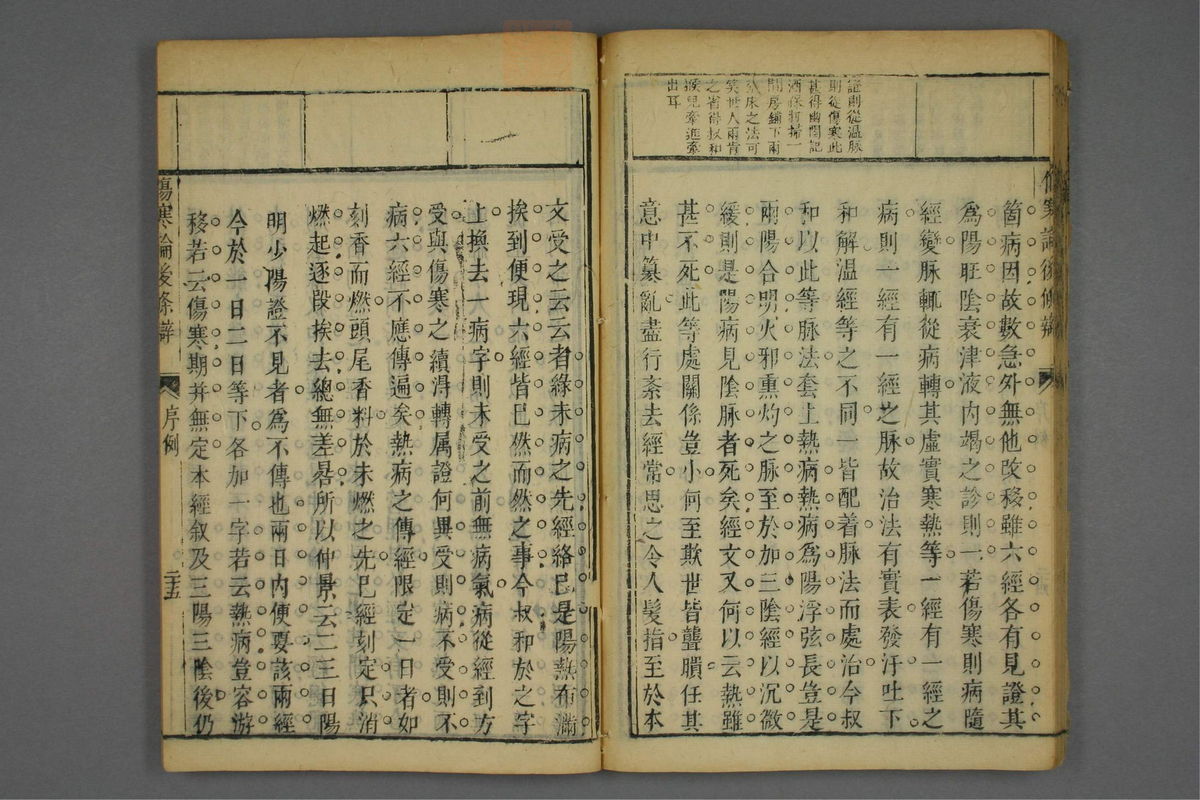 傷寒論後條辯
箇病因故數急外無他改移雖六經各有見證其
爲陽旺陰衰津液內竭之診則一若傷寒則病隨
經變脉輒從病轉其虛實寒熱等一經有一經之
病則一經有一經之脉故治法有實表發汗吐下
和解温經等之不同一皆配着脉法而處治今叔
和以此等脉法套上熱病熱病爲陽浮弦長豈是
兩陽合明火邪熏灼之脉至於加三陰經以沉微
緩則是陽病見陰脉者死矣經文又何以云熱雖
甚不死此等處關係豈小何至欺世皆聾瞶任其
意中纂亂盡行紊去經常思之令人髮指至於本
證則從温脉
則從傷寒此
甚得幽閒記
酒保打掃一
間房鋪下兩
張床之法可
笑世人兩肯
之省得叔和
猴兒牽進牽
出耳
文受之云云者緣未病之先經絡已是陽熱布滿
挨到便現六經皆已然而然之事今叔和於之字
上換去一病字則未受之前無病氣病從經到方
受與傷寒之續淂轉属證何異受則病不受則不
病六經不應傳遍矣熱病之傳經限定一日者如
刻香而燃頭尾香料於未燃之先已經刻定只消
燃起逐段挨去總無差晷所以仲景云二三日陽
明少陽證不見者爲不傳也兩日內便要該兩經
今於一日二日等下各加一字若云熱病豈容游
移若云傷寒期并無定本經叙及三陽三陰後仍
傷寒論後條辯
序例
二十五